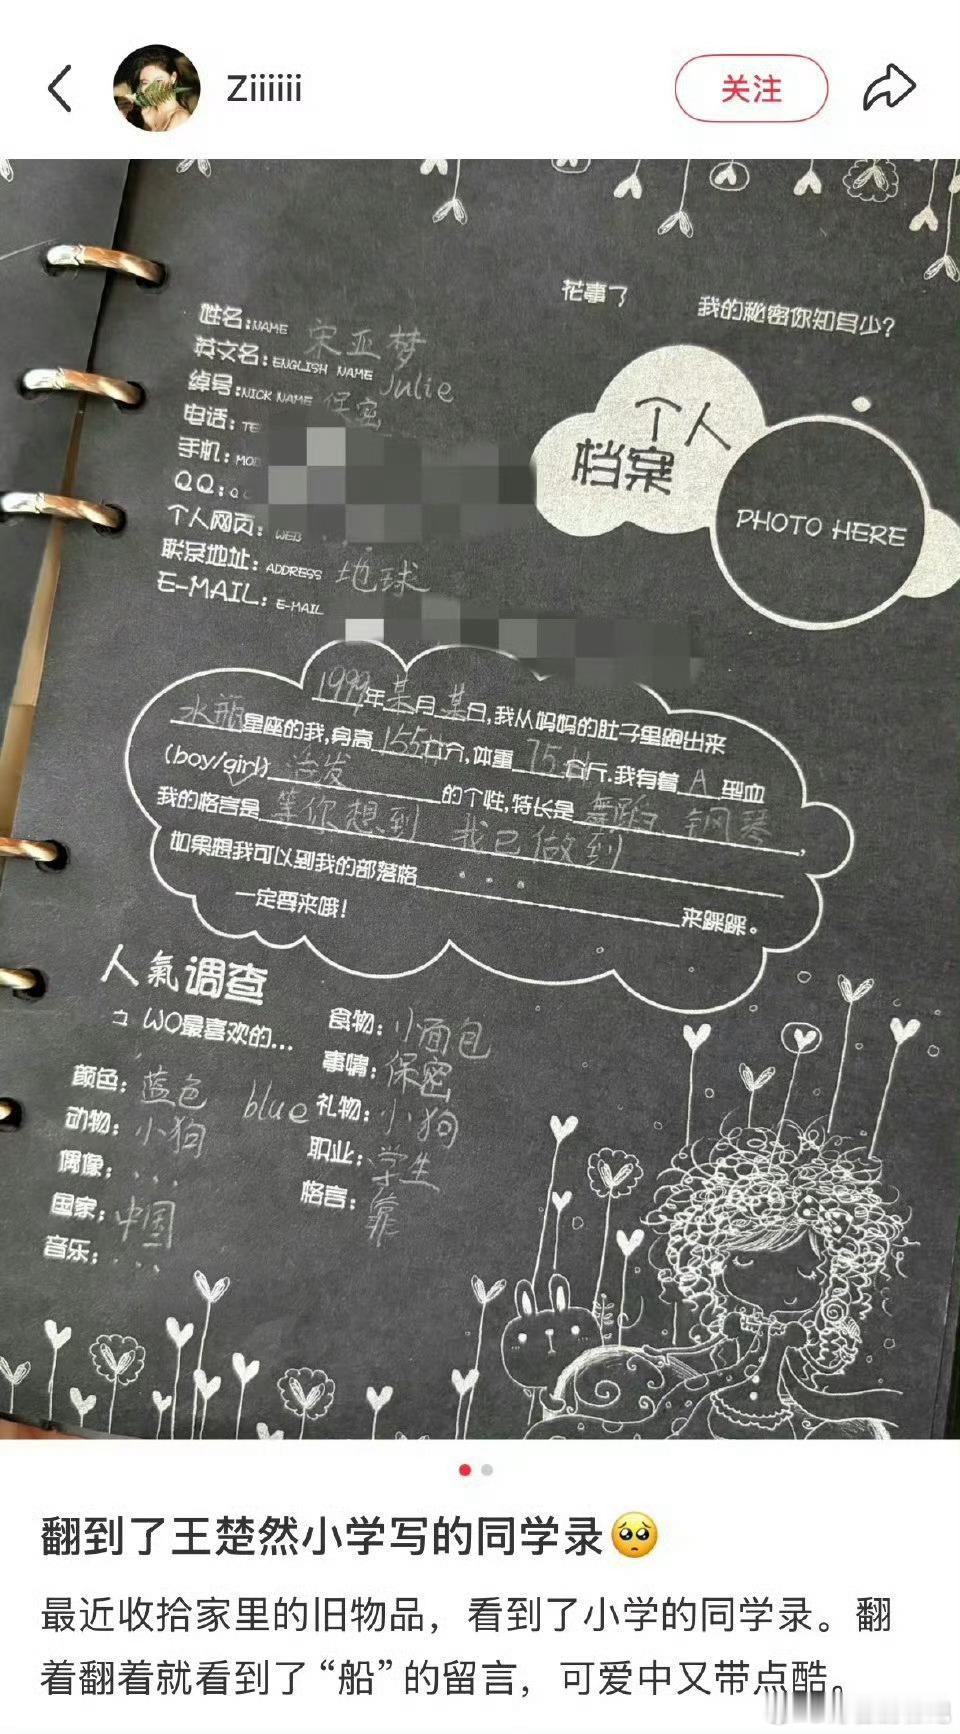 Ziiiiii
关注
花事了
我的秘密你知多少?
姓名:NAME 宋亚梦
英文名:ENGLISH NAME Julie
绰号:NICK NAME 保密
电话:TE
手机:MO
QQ:
个人网页:WEB
联系地址:ADDRESS 地球
E-MAIL:E-MAIL
个人
档案
PHOTO HERE
1999年某月某日,我从妈妈的肚子里跑出来
水瓶星座的我,身高155公分,体重75公斤.我有着A型血
(boy/girl) 的个性,特长是舞蹈、钢琴,
我的格言是等你想到 我已做到
如果想我可以到我的部落格...来踩踩。
一定要来哦!
人氣调查
WO最喜欢的...
颜色:蓝色 blue
动物:小狗
偶像:...
国家:中国
音乐:...
食物:小面包
事情:保密
礼物:小狗
职业:学生
格言:靠
翻到了王楚然小学写的同学录🥺
最近收拾家里的旧物品，看到了小学的同学录。翻
着翻着就看到了“船”的留言，可爱中又带点酷。